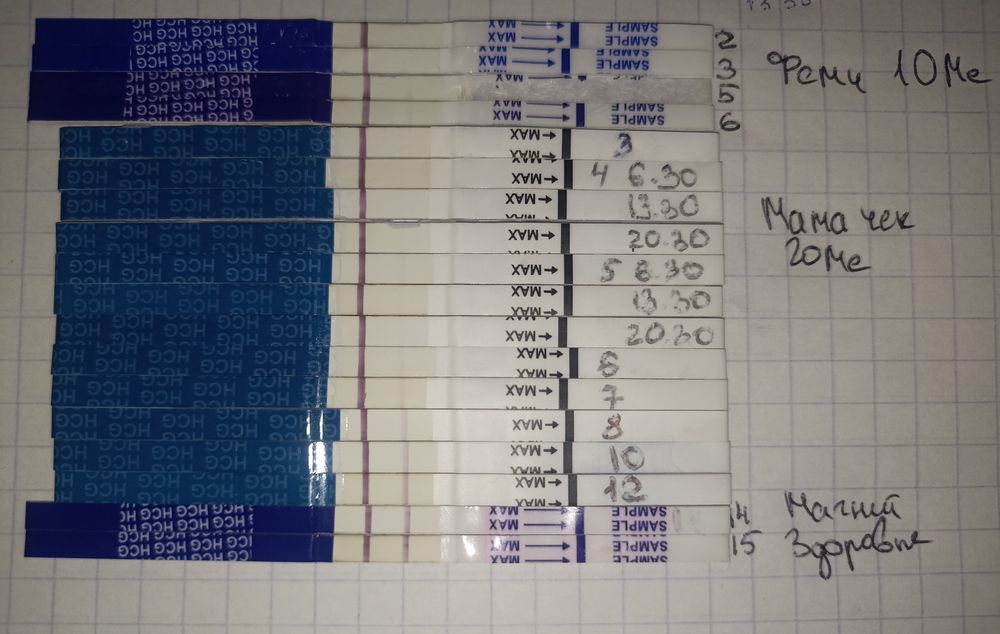 HCG HCG HCG HCG MAX SAMPLE 2
HCG HCG HCG HCG MAX SAMPLE 3
Феми 10Ме
HCG HCG HCG HCG 5
HCG HCG HCG HCG MAX SAMPLE 6
HCG HCG HCG MAX 3
HCG HCG HCG MAX 4 6.30
HCG HCG HCG MAX 13.30
Мама чек
HCG HCG HCG MAX 20.30
20Ме
HCG HCG HCG MAX 5 6.30
HCG HCG HCG MAX 13.30
HCG HCG HCG MAX 20.30
HCG HCG HCG MAX 6
HCG HCG HCG MAX 7
HCG HCG HCG MAX 8
HCG HCG HCG MAX 10
HCG HCG HCG MAX 12
HCG HCG HCG HCG MAX SAMPLE 14
Магний
HCG HCG HCG HCG MAX SAMPLE 15
Здоровье